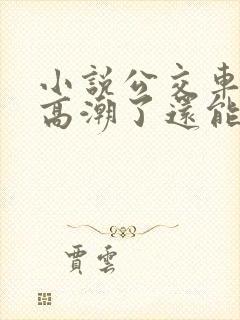 小說公交車
高潮了還能
賈雲